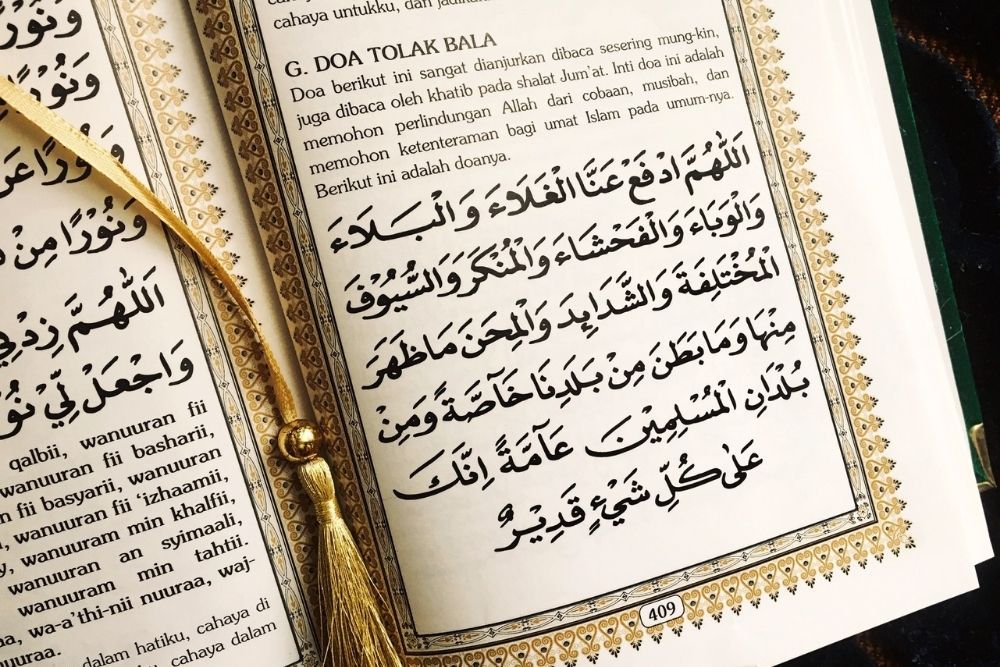 وَنُوْرًا
وَنُوْرًا مِنْ
اَللّٰهُمَّ زِدْنِي
وَاجْعَلْ لِّيْ
qalbii, wanuuran fii
wanuuran fii basharii,
fii basyarii, wanuuran
wanuuran fii ‘izhaamii,
wanuuram min khalfii,
wanuuran an syimaali,
wanuuram min tahtii.
wa-a’thi-nii nuuraa, waj-
dalam hatiku, cahaya di
cahaya dalam
cahaya untukku, dan
G. DOA TOLAK BALA
Doa berikut ini sangat dianjurkan dibaca sesering mung-kin,
juga dibaca oleh khatib pada shalat Jum’at. Inti doa ini adalah
memohon perlindungan Allah dari cobaan, musibah, dan
memohon ketenteraman bagi umat Islam pada umum-nya.
Berikut ini adalah doanya.
اَللّٰهُمَّ ادْفَعْ عَنَّا الْغَلَاءَ وَالْبَلَاءَ
وَالْوَبَاءَ وَالْفَحْشَاءَ وَالْمُنْكَرَ وَالسُّيُوْفَ
الْمُخْتَلِفَةَ وَالشَّدَايِدَ وَالْمِحَنَ مَا ظَهَرَ
مِنْهَا وَمَا بَطَنَ مِنْ بَلَدِنَا خَآصَّةً وَمِنْ
بُلْدَانِ الْمُسْلِمِيْنَ عَآمَّةً اِنَّكَ
عَلٰى كُلِّ شَيْءٍ قَدِيْرٌ
409